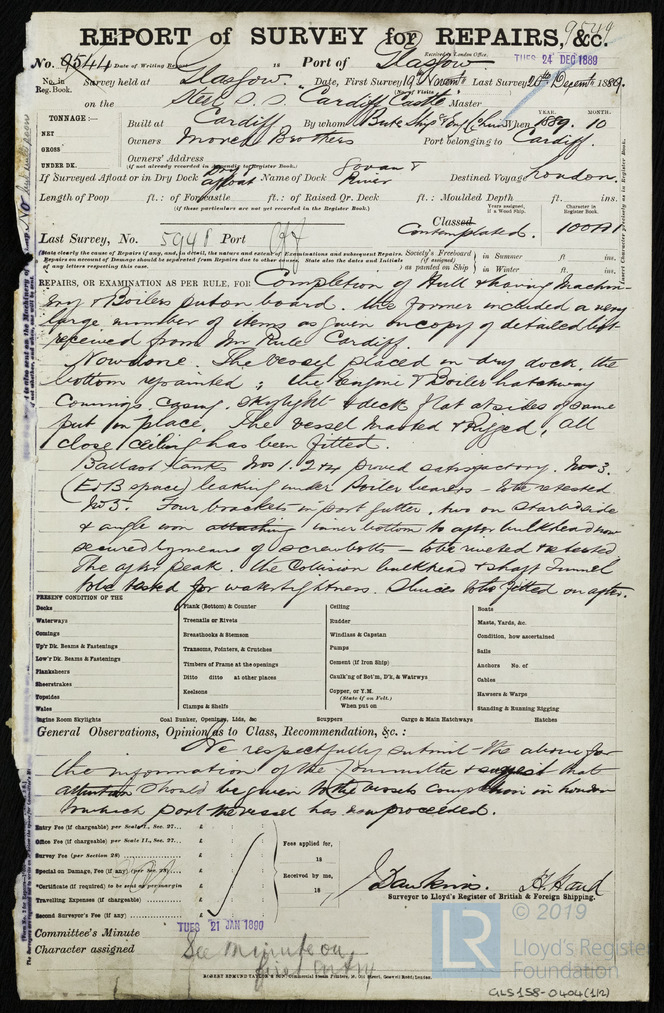 REPORT of SURVEY for REPAIRS, &c. 9544
No. 9544 Date of Writing Report 18 Port of Glasgow. Received at London Office. TUES 24 DEC 1889
No. in Reg. Book. Survey held at Glasgow. Date, First Survey 19th Novemb Last Survey 20th Decemb 1889.
(No. of Visits)
on the Steel S.S. "Cardiff Castle" Master
TONNAGE:— Built at Cardiff By whom When YEAR. 1889. MONTH. 10
NET Owners Morel Brothers Port belonging to Cardiff.
GROSS
UNDER DK. Owners' Address
(if not already recorded in Appendix to Register Book.)
If Surveyed Afloat or in Dry Dock Dry & afloat Name of Dock Govan & River Destined Voyage London.
Length of Poop ft.: of Forecastle ft.: of Raised Qr. Deck ft.: Moulded Depth ft. ins.
(if these particulars are not yet recorded in the Register Book.)
Years assigned, if a Wood Ship. Character in Register Book.
Last Survey, No. 5948 Port Classed Contemplated. 100A1
(State clearly the cause of Repairs if any, and, in detail, the nature and extent of Examinations and subsequent Repairs. Repairs on account of Damage should be separated from Repairs due to other causes. State also the dates and Initials of any letters respecting this case.
Society's Freeboard (if assigned) as painted on Ship in Summer ft ins.
in Winter ft. ins.
REPAIRS, OR EXAMINATION AS PER RULE, FOR Completion of Hull & having Machin-
ery & Boilers put on board. the former included a very
large number of items as given on copy of detailed list
received from Mr Rule Cardiff.
Now done. The vessel placed in dry dock, the
bottom repainted; the Engine & Boiler hatchway
Comings, casing, skylight & deck flat at sides of same
put in place. The vessel masted & Rigged, all
close ceiling has been fitted.
Ballast tanks Nos 1. 2 & 4 proved satisfactory. No 3.
(E & B space) leaking under Boiler bearers – to be retested
No 3. Four brackets in port gutter, two on starbd side
& angle iron attaching inner bottom to after bulkhead now
secured by means of screw bolts – to be riveted & tested
The after peak. the Collision bulkhead & shaft Tunnel
to be tested for watertightness. Sluices to be fitted on after.
PRESENT CONDITION OF THE
Decks
Waterways
Comings
Up'r Dk. Beams & Fastenings
Low'r Dk. Beams & Fastenings
Planksheers
Sheerstrakes
Topsides
Wales
Engine Room Skylights
Plank (Bottom) & Counter
Treenails or Rivets
Breasthooks & Stemson
Transoms, Pointers, & Crutches
Timbers of Frame at the openings
Ditto ditto at other places
Keelsons
Clamps & Shelfs
Coal Bunker, Openings, Lids, &c
Ceiling
Rudder
Windlass & Capstan
Pumps
Cement (if Iron Ship)
Caulk'ng of Bot'm, D'k, & Watrwys
Copper, or Y.M.
(State if on Felt.)
When put on
Scuppers Cargo & Main Hatchways
Boats
Masts, Yards, &c.
Condition, how ascertained
Sails
Anchors No. of
Cables
Hawsers & Warps
Standing & Running Rigging
Hatches
General Observations, Opinion as to Class, Recommendation, &c.:
We respectfully submit the above for
the information of the Committee & suggest that
attention should be given to the vessels completion in London
to which port the vessel has now proceeded.
Entry Fee (if chargeable) per Scale I., Sec. 27... £ : :
Office Fee (if chargeable) per Scale II., Sec. 27... £ : :
Survey Fee (per Section 28) £ : :
Special on Damage, Fee (if any) (per Sec. 28) £ : :
*Certificate (if required) to be sent as per margin
Travelling Expenses (if chargeable) £ : :
Second Surveyor's Fee (if any) £ : :
Fees applied for,
18
Received by me,
18
J. Dawkins. H. Hand
Surveyor to Lloyd's Register of British & Foreign Shipping.
Committee's Minute TUES 21 JAN 1890
Character assigned See minute on
first entry
ROBERT EDMUND TAYLOR & SON, Commercial Steam Printers, 19, Old Street, Goswell Road, London.
LR © 2019
Lloyd's Register
Foundation
GLS158-0404(1/2)